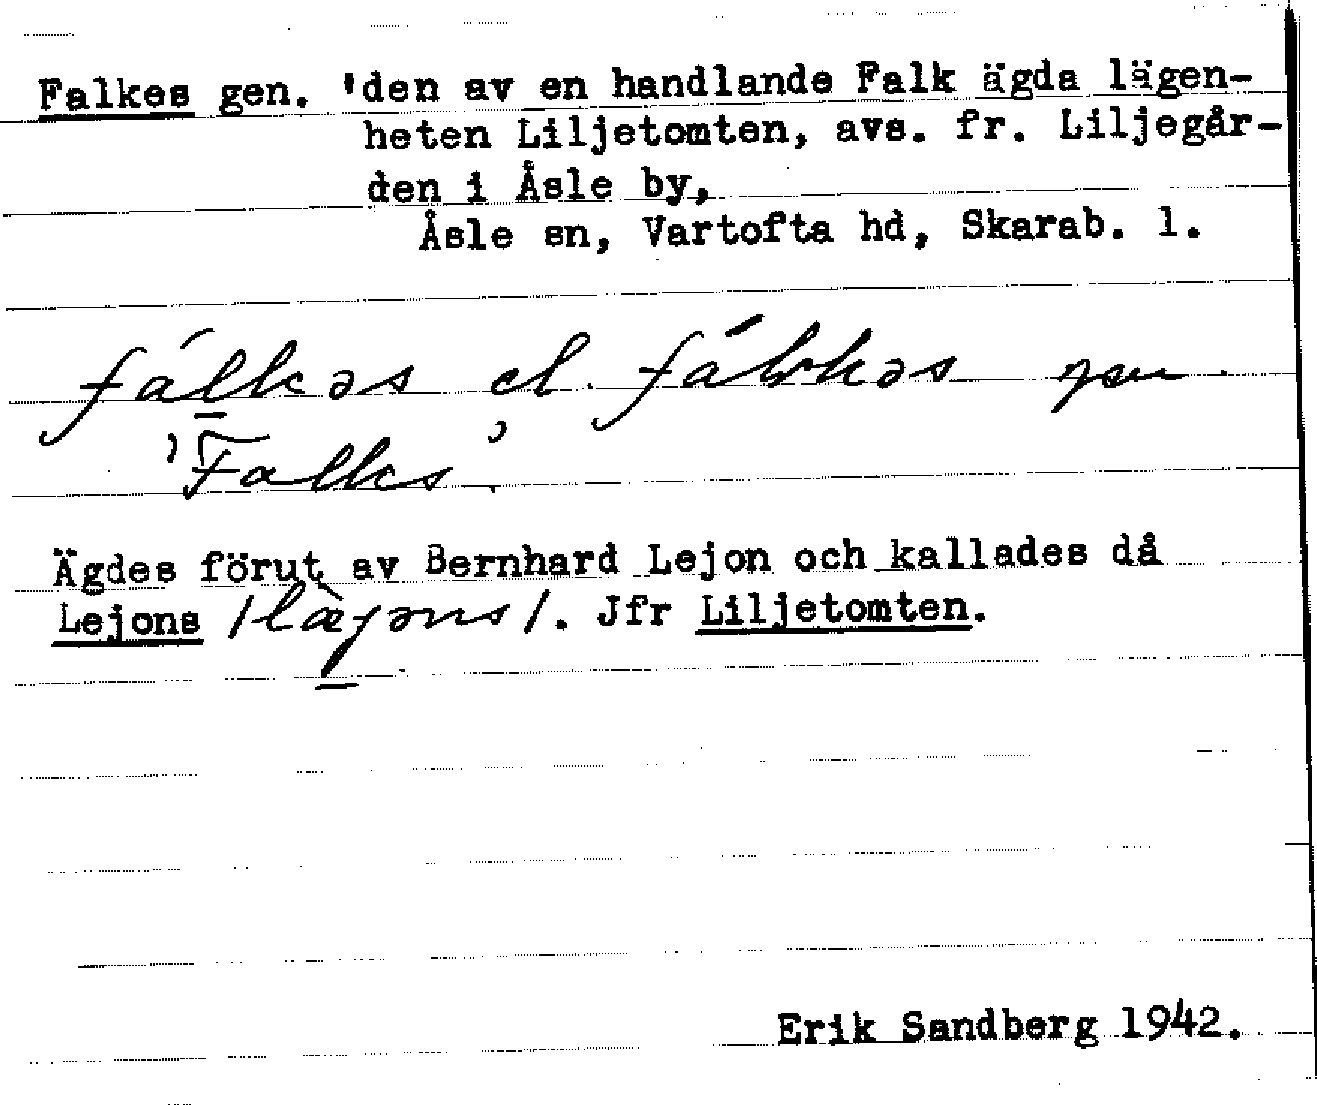 Falkes gen. 'den av en handlande Falk ägda lägen-
heten Liljetomten, avs. fr. Liljegår-
den i Åsle by,
Åsle sn, Vartofta hd, Skarab. l.
fálkəs el. fáləkəs gen.
'Falks'.
Ägdes förut av Bernhard Lejon och kallades då
Lejons /læ̀jəns/. Jfr Liljetomten.
Erik Sandberg 1942.